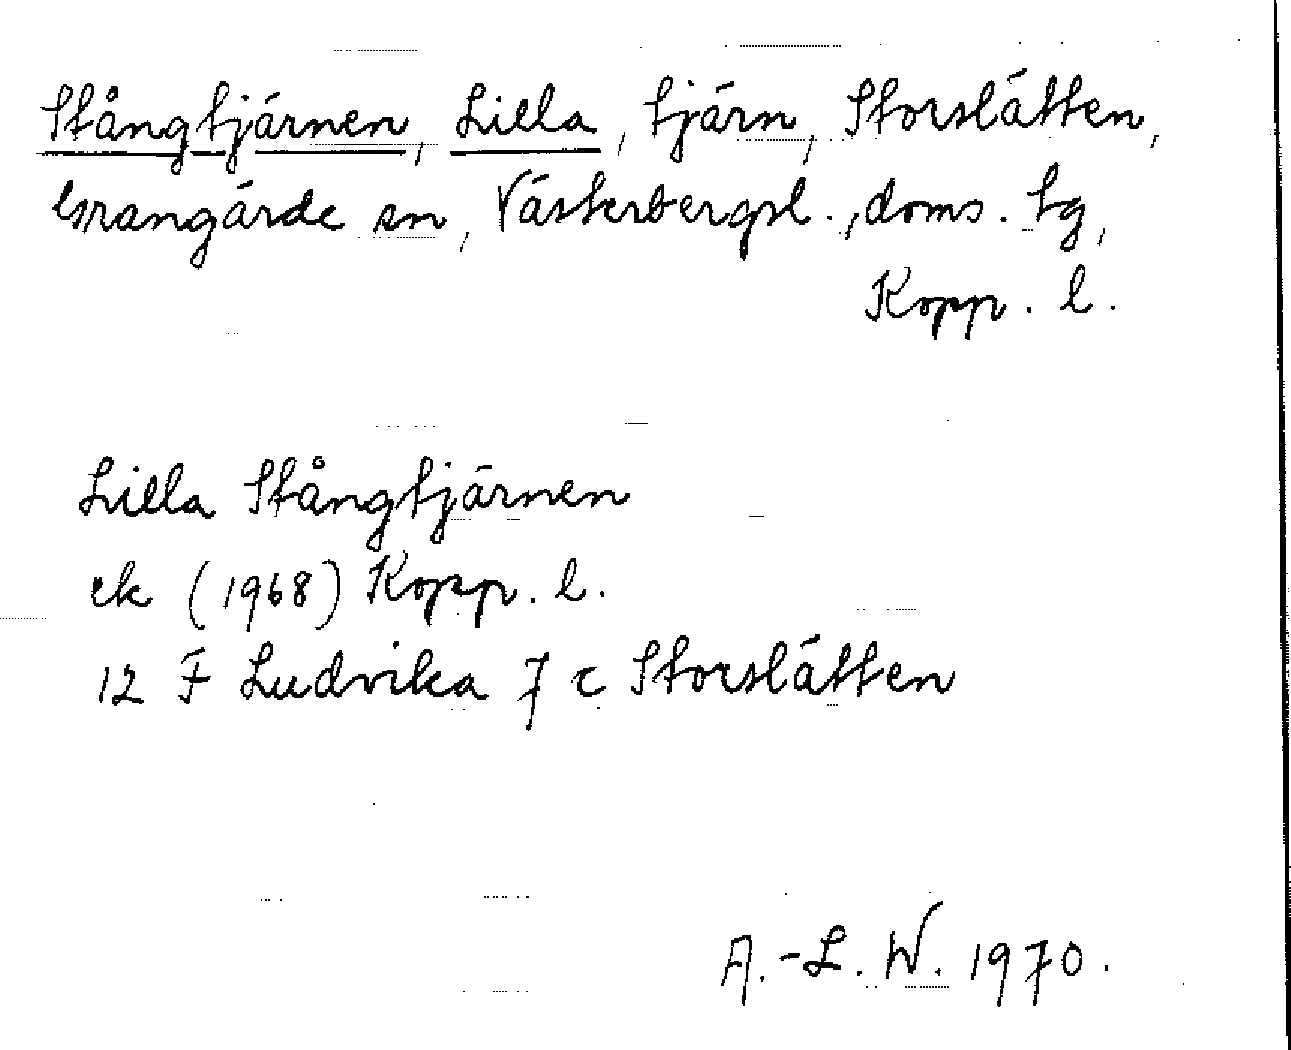 Stångtjärnen, Lilla, tjärn, Storslätten,
Grangärde sn, Västerbergsl., doms. tg,
Kopp. l.
Lilla Stångtjärnen
ek (1968) Kopp. l.
12 F Ludvika 7 c Storslätten
A.-L. W. 1970.